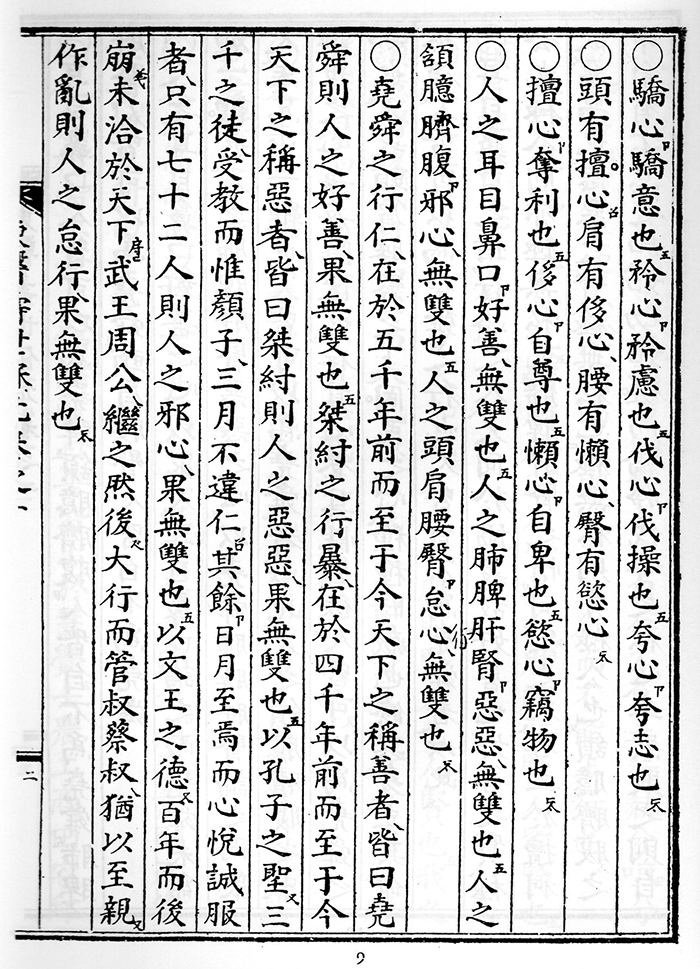 ○驕心驕意也矜心矜慮也伐心伐操也夸心夸志也
○頭有擅心肩有侈心腰有懶心臀有慾心
○擅心奪利也侈心自尊也懶心自卑也慾心竊物也
○人之耳目鼻口好善無雙也人之肺脾肝腎惡惡無雙也人之
頷臆臍腹邪心無雙也人之頭肩腰臀怠心無雙也
○堯舜之行仁在於五千年前而至于今天下之稱善者皆曰堯
舜則人之好善果無雙也桀紂之行暴在於四千年前而至于今
天下之稱惡者皆曰桀紂則人之惡惡果無雙也以孔子之聖三
千之徒受教而惟顏子三月不違仁其餘日月至焉而心悅誠服
者只有七十二人則人之邪心果無雙也以文王之德百年而後
崩未洽於天下武王周公繼之然後大行而管叔蔡叔猶以至親
作亂則人之怠行果無雙也
二
9